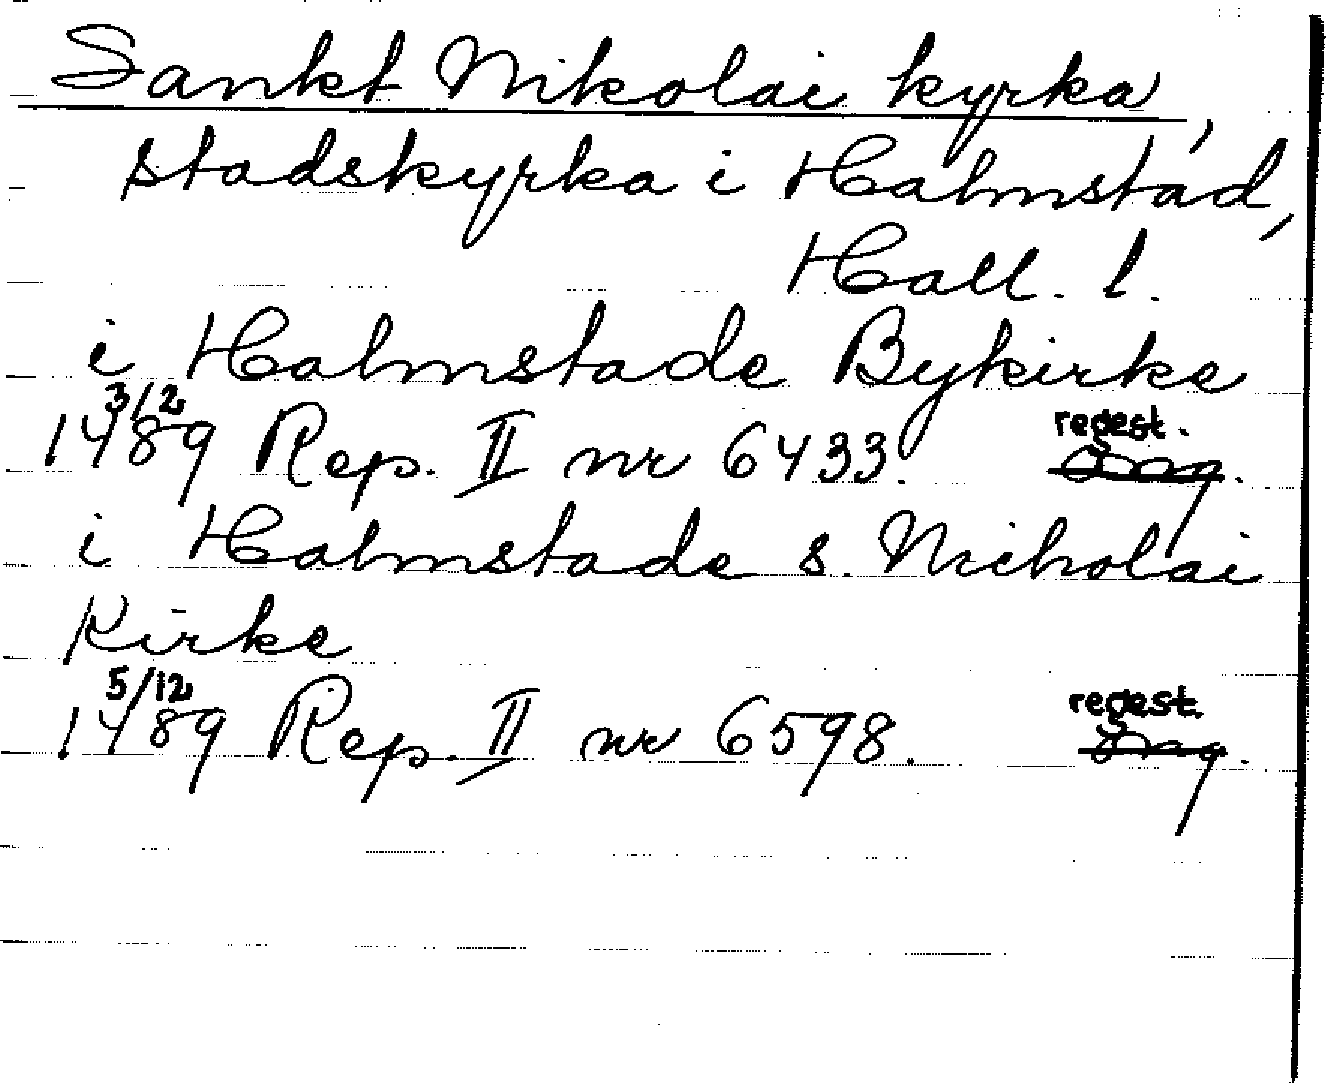 Sankt Nikolai kyrka,
stadskyrka i Halmstad,
Hall. l.
i Halmstade Bykirke
3/2
1489 Rep. II nr 6433. regest.
i Halmstade s. Nicholai
Kirke
5/12
1489 Rep. II nr 6598. regest.